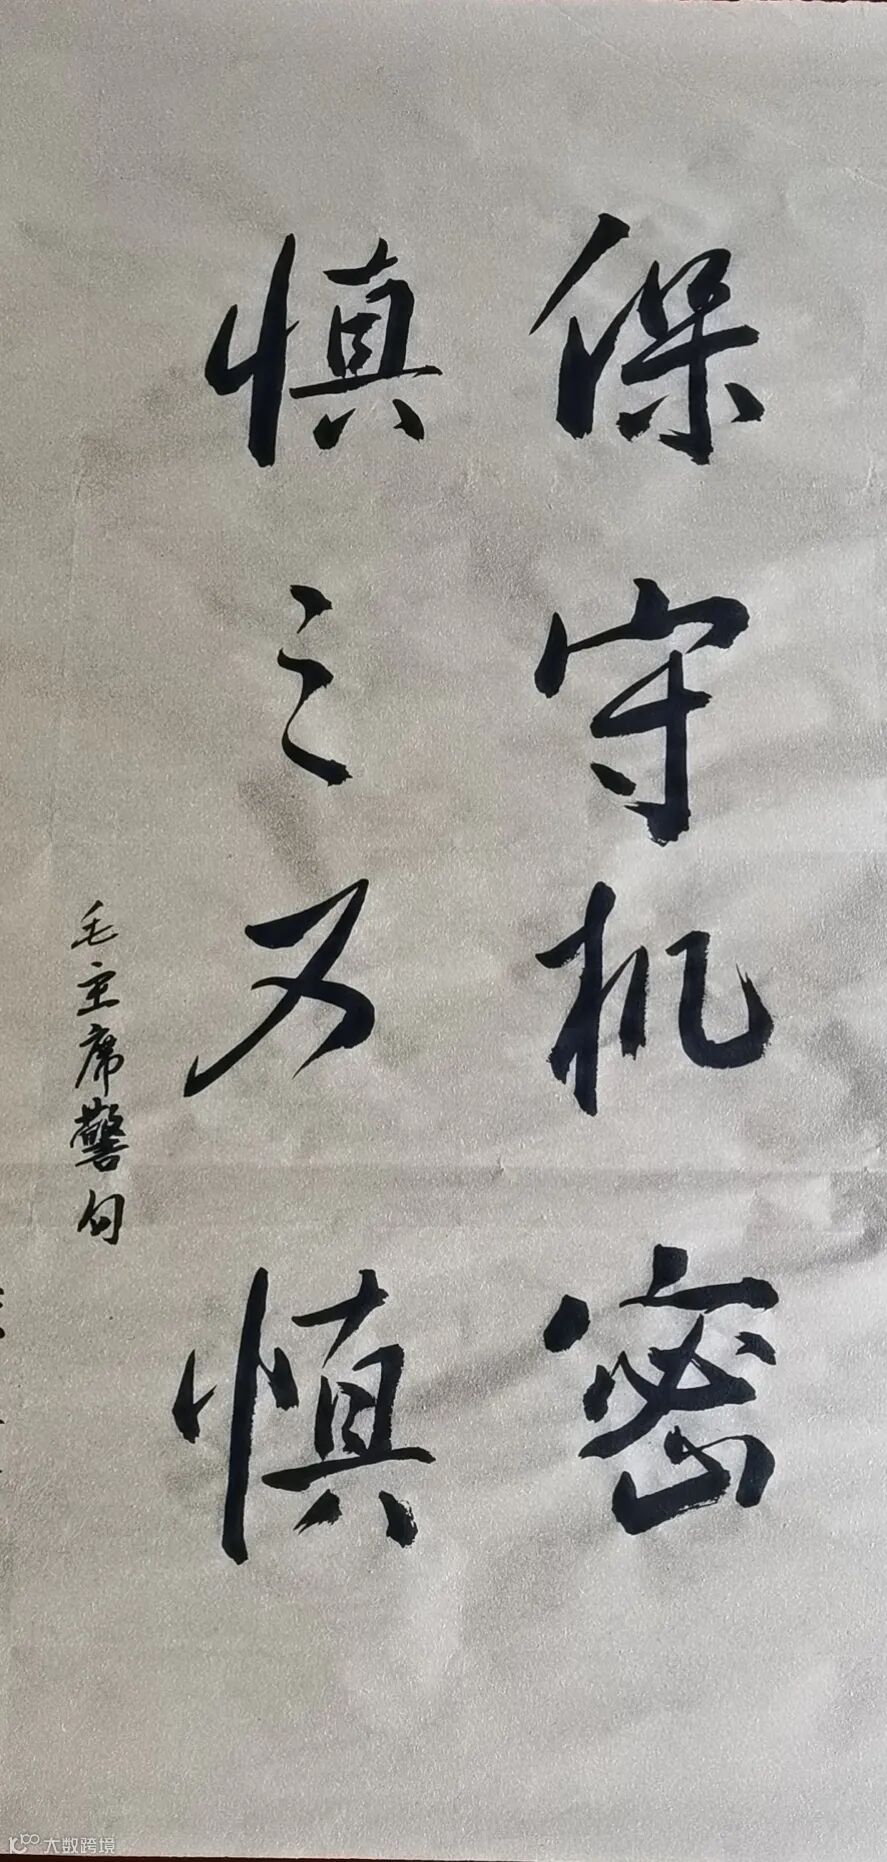 保守机密
慎之又慎
毛主席警句
大数跨境